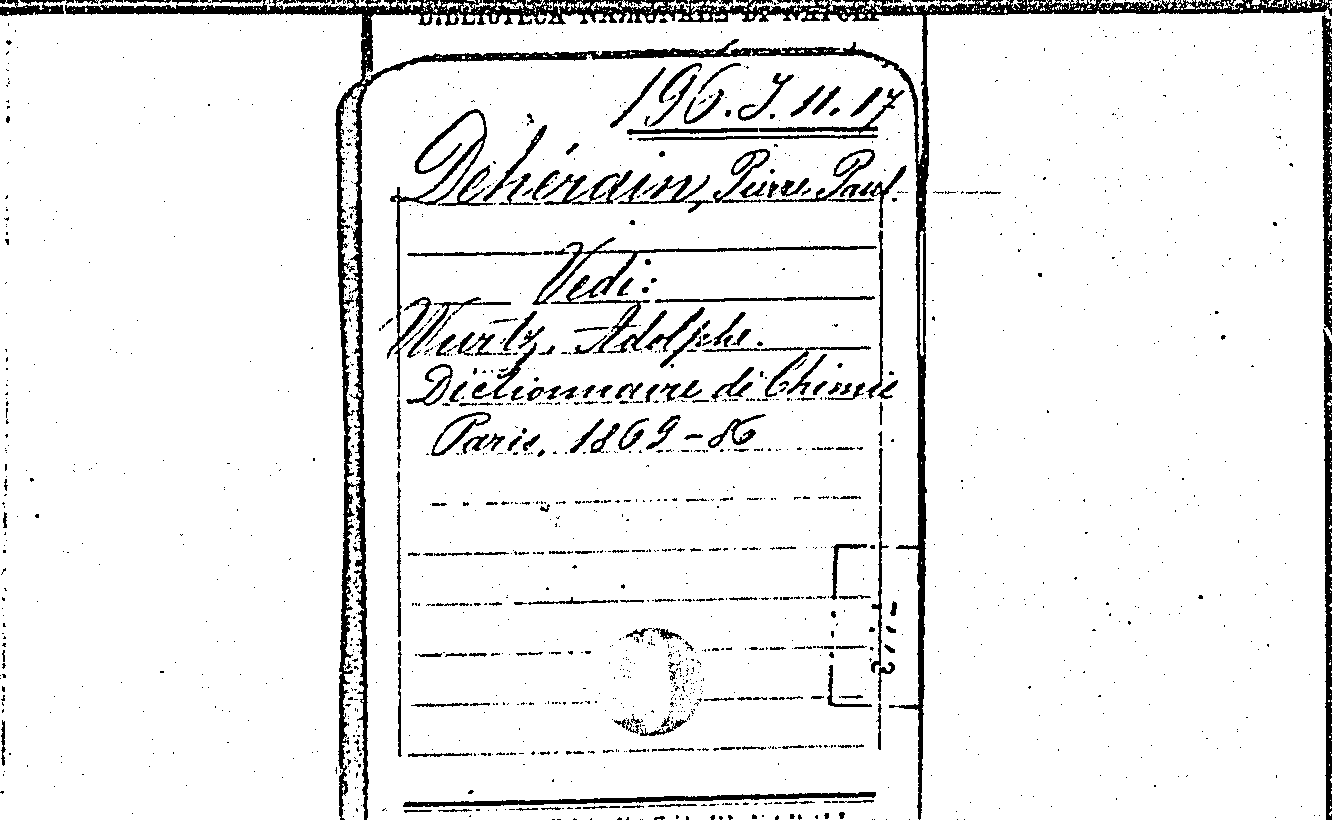 BIBLIOTECA NAZIONALE DI NAPOLI
196. J. 11. 17
Dehérain, Pierre Paul.
Vedi:
Wurtz, Adolphe.
Dictionnaire de Chimie
Paris, 1869-86